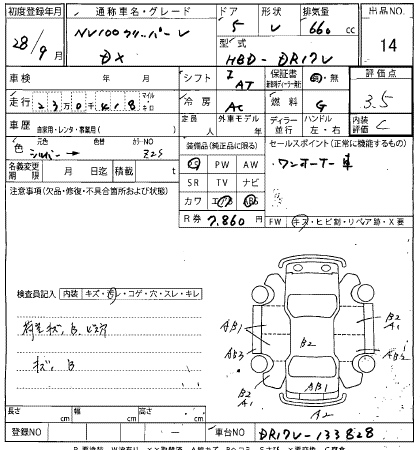 初度登録年月 通称車名・グレード ドア 形状 排気量 出品NO.
28/9月 NV100クリッパー V DX 5 V 660cc 14
型式 HBD-DR17V
車検 年 月 シフト I AT 保証書 有・無 評価点 3.5
走行 230418 マイル キロ 冷房 AC 燃料 G 内装評価 C
車歴 自家用・レンタ・事業用( ) 定員 人 外車モデル 年 ディーラー 並行 ハンドル 左・右
色 元色 シルバー → 色替 カラーNO Z2S
装備品(純正品に限る) セールスポイント(正常に機能するもの)
PS PW AW ・ワンオーナー車
名義変更期限 月 日迄 積載 t
SR TV ナビ
注意事項(欠品・修復・不具合箇所および状態)
カワ エアB ABS
R券 7,860円 FW キズ・ヒビ割・リペア跡・X要
検査員記入 内装 キズ・汚レ・コゲ・穴・スレ・キレ
荷室キズ、B、ビス穴
キズ、B
B2 A1
AB1
B2
AB3
AB2
B2 A1
AB1
A2
長さ cm 幅 cm 高さ cm
登録NO 車台NO DR17V-133828